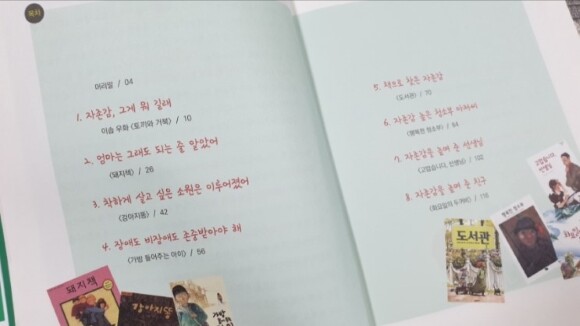 목차
머리말 / 04
1. 자존감, 그게 뭐 길래
이솝 우화 <토끼와 거북> / 10
2. 엄마는 그래도 되는 줄 알았어
<돼지책> / 26
3. 착하게 살고 싶은 소원은 이루어졌어
<강아지똥> / 42
4. 장애도 비장애도 존중받아야 해
<가방 들어주는 아이> / 56
돼지책
강아지똥
가방
5. 책으로 찾은 자존감
<도서관> / 70
6. 자존감 높은 청소부 아저씨
<행복한 청소부> / 84
7. 자존감을 높여 준 선생님
<고맙습니다, 선생님> / 102
8. 자존감을 높여 준 친구
<화요일의 두꺼비> / 116
도서관
행복한 청소부
고맙습니다
선생님